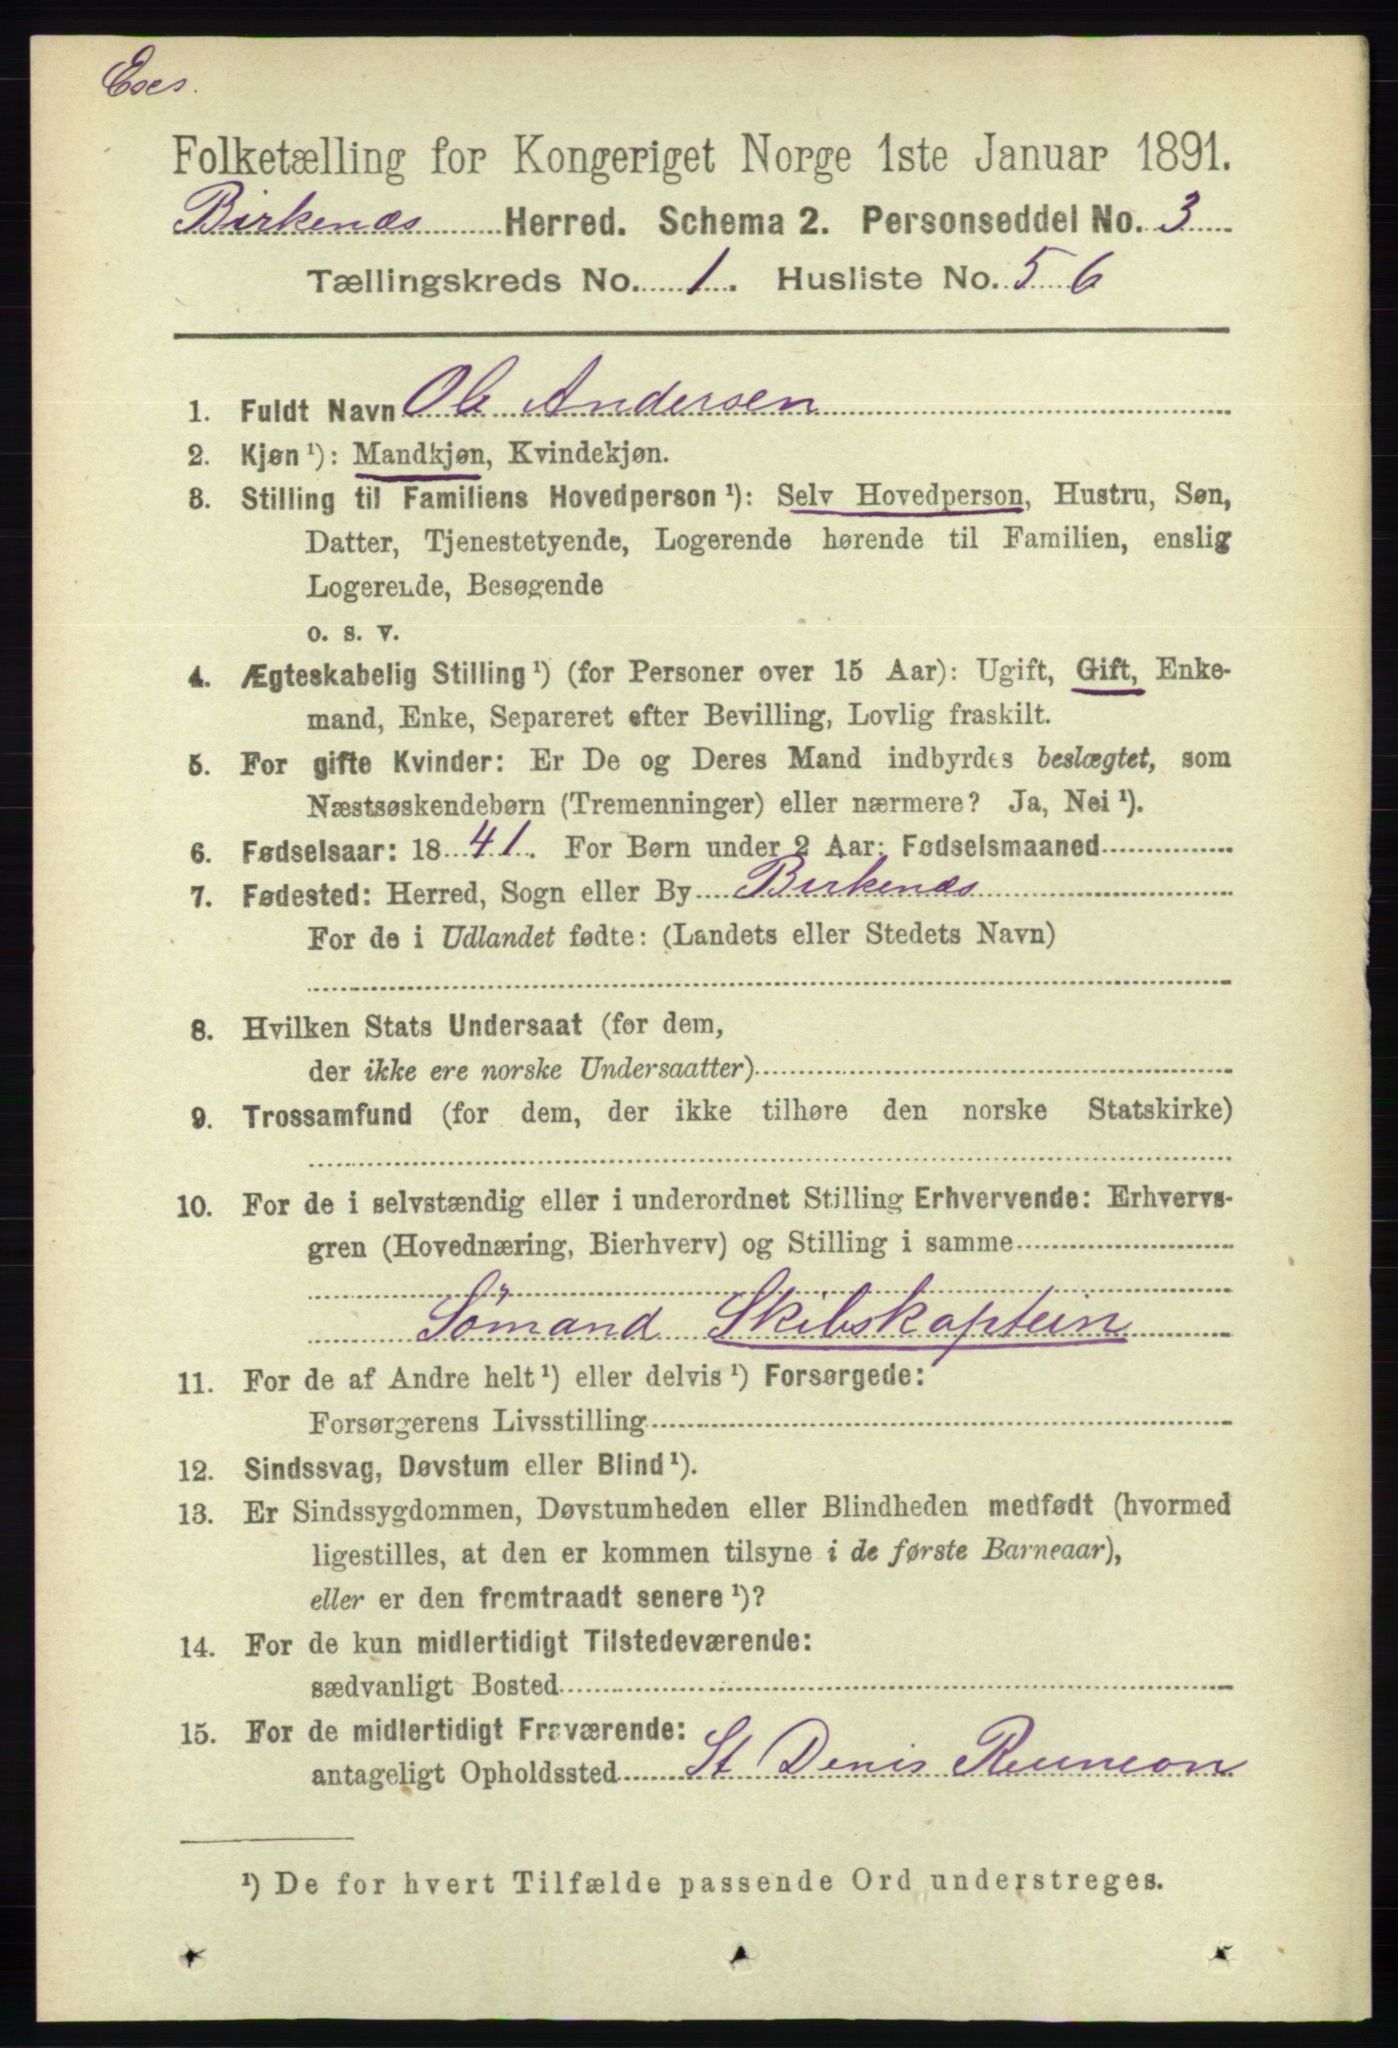 Folketælling for Kongeriget Norge 1ste Januar 1891.
Birkenæs Herred. Schema 2. Personseddel No. 3
Tællingskreds No. 1. Husliste No. 56
1. Fuldt Navn Ole Andersen
2. Kjøn ¹): Mandkjøn, Kvindekjøn.
3. Stilling til Familiens Hovedperson ¹): Selv Hovedperson, Hustru, Søn,
Datter, Tjenestetyende, Logerende hørende til Familien, enslig
Logerende, Besøgende
o. s. v.
4. Ægteskabelig Stilling ¹) (for Personer over 15 Aar): Ugift, Gift, Enke-
mand, Enke, Separeret efter Bevilling, Lovlig fraskilt.
5. For gifte Kvinder: Er De og Deres Mand indbyrdes beslægtet, som
Næstsøskendebørn (Tremenninger) eller nærmere? Ja, Nei ¹).
6. Fødselsaar: 1841. For Børn under 2 Aar: Fødselsmaaned
7. Fødested: Herred, Sogn eller By Birkenæs
For de i Udlandet fødte: (Landets eller Stedets Navn)
8. Hvilken Stats Undersaat (for dem,
der ikke ere norske Undersaatter)
9. Trossamfund (for dem, der ikke tilhøre den norske Statskirke)
10. For de i selvstændig eller i underordnet Stilling Erhvervende: Erhvervs-
gren (Hovednæring, Bierhverv) og Stilling i samme
Sömand Skibskaptein
11. For de af Andre helt ¹) eller delvis ¹) Forsørgede:
Forsørgerens Livsstilling
12. Sindssvag, Døvstum eller Blind ¹).
13. Er Sindssygdommen, Døvstumheden eller Blindheden medfødt (hvormed
ligestilles, at den er kommen tilsyne i de første Barneaar),
eller er den fremtraadt senere ¹)?
14. For de kun midlertidigt Tilstedeværende:
sædvanligt Bosted
15. For de midlertidigt Fraværende:
antageligt Opholdssted St Denis Reunion
¹) De for hvert Tilfælde passende Ord understreges.